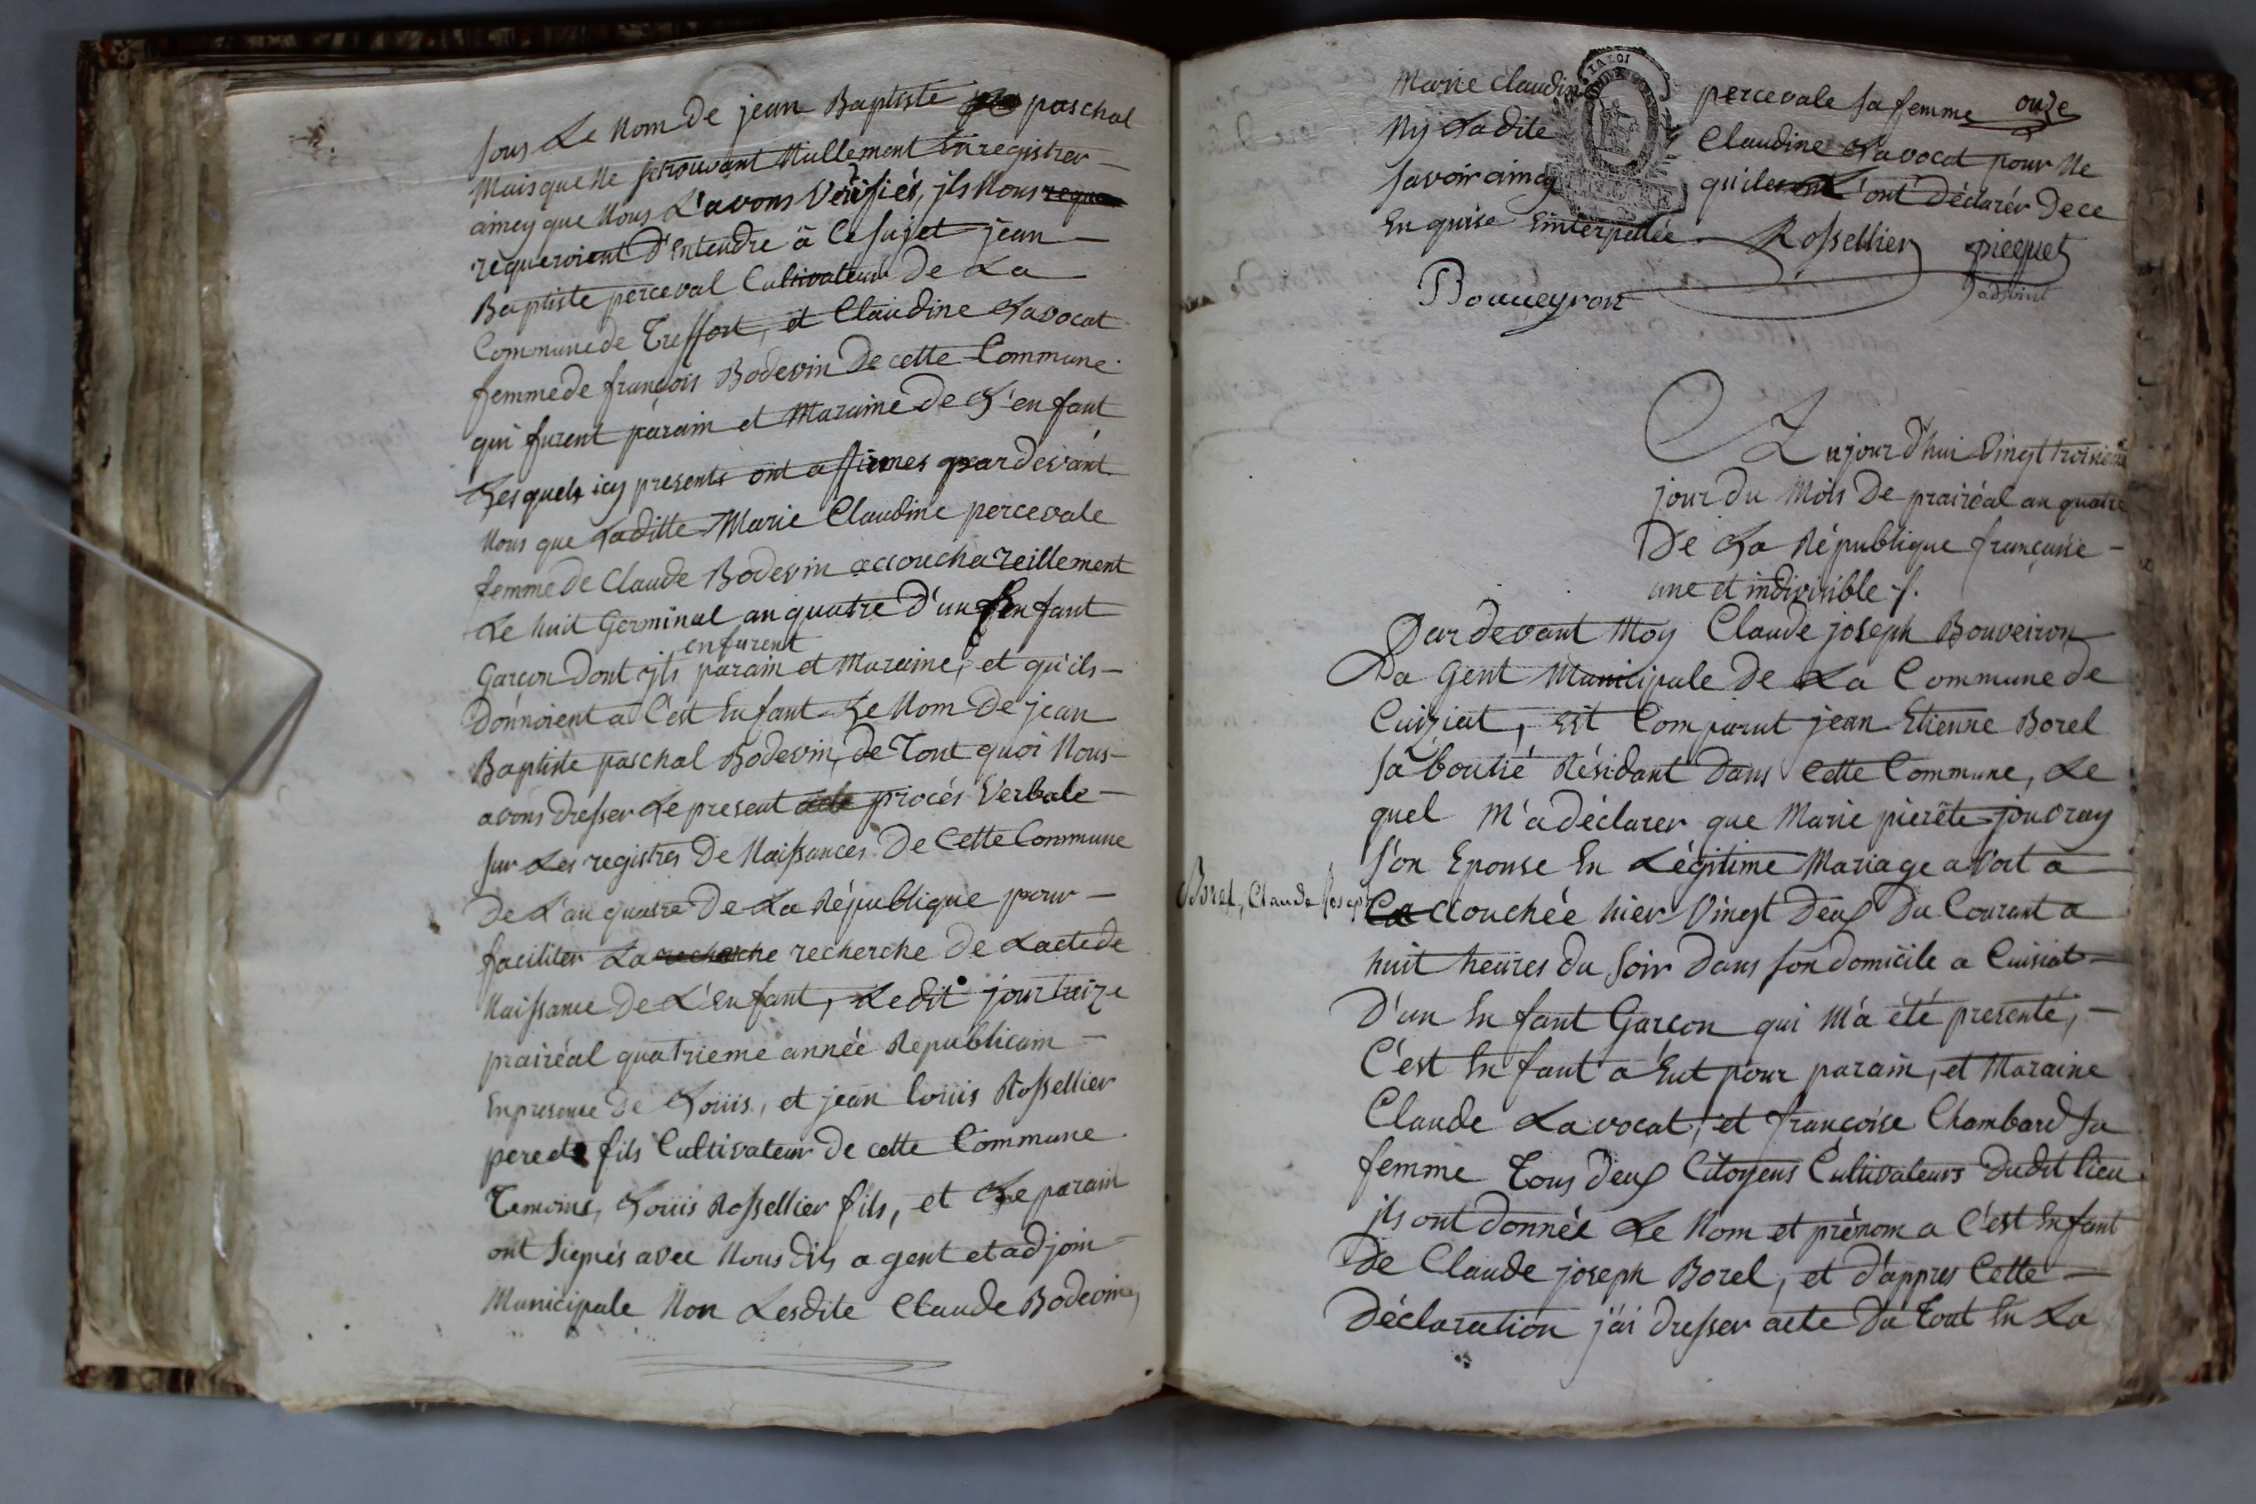 sous Le Nom de jean Baptiste paschal
Mais que Ne se trouvant Nullement Enregistrer
aincy que Nous L'avons Vérifiés, jls Nous
requeroient D'Entendre à Ce sujet jean
Baptiste perceval Cultivateur De La
Commune de Treffort, et Claudine Lavocat
femme de françois Bodevin De cette Commune
qui furent parain et Maraine de L'enfant
Lesquels icy presents ont affirmes pardevant
Nous que Laditte Marie Claudine percevale
femme de Claude Bodevin accoucha reillement
Le huit Germinal an quatre D'un Enfant
enfurent
Garçon Dont jls parain et Maraine, et qu'ils
Donnoient à C'est Enfant Le Nom De jean
Baptiste paschal Bodevin, de Tout quoi Nous
avons Dresser Le present acte procés Verbale
sur Les registres De Naissances De Cette Commune
De L'an quatre De La République pour
faciliter La recherche recherche De Lacte de
Naissance De L'Enfant, Ledit jour treize
prairéal quatrieme année Republicain
En presence De Loüis, et jean loüis Rossellier
pere et fils Cultivateur De cette Commune
Temoins, Loüis Rossellier fils, et Le parain
ont signés avec Nous Dits agent et adjoin
Municipale Non Lesdite Claude Bodevin,
Marie Claudine percevale sa femme onze
Ny Ladite Claudine Lavocat pour Ne
savoir aincy qu'iles L'ont Déclarér De ce
Enquise Einterpellée. Rossellier picquet
Bouveyron adjoint
LA LOI
Aujourd'hui Vingt troisieme
jour du Mois De prairéal an quatre
De La République françaisse
une et indivisible /.
Pardevant Moy Claude joseph Bouveiron
La Gent Municipale De La Commune de
Cuiziat, Est Comparut jean Etienne Borel
saboutié Résidant Dans Cette Commune, Le
quel M'a déclarer que Marie pierête jouvray
s'on Epouse En Légitime Mariage avoit a
Borel, Claude Joseph
Ca Couchée hier Vingt Deux Du Courant a
huit heures du soir Dans son domicile a Cuisiat
D'un Enfant Garçon qui M'a été presenté,
C'est Enfant a Eut pour parain, et Maraine
Claude Lavocat, et françoise Chambard sa
femme Tous Deux Citoyens Cultivateurs Dudit lieu
jls ont donnée Le Nom et prénom a C'est Enfant
De Claude joseph Borel, et d'appres Cette
Déclaration j'ai Dresser acte Du Tout En La